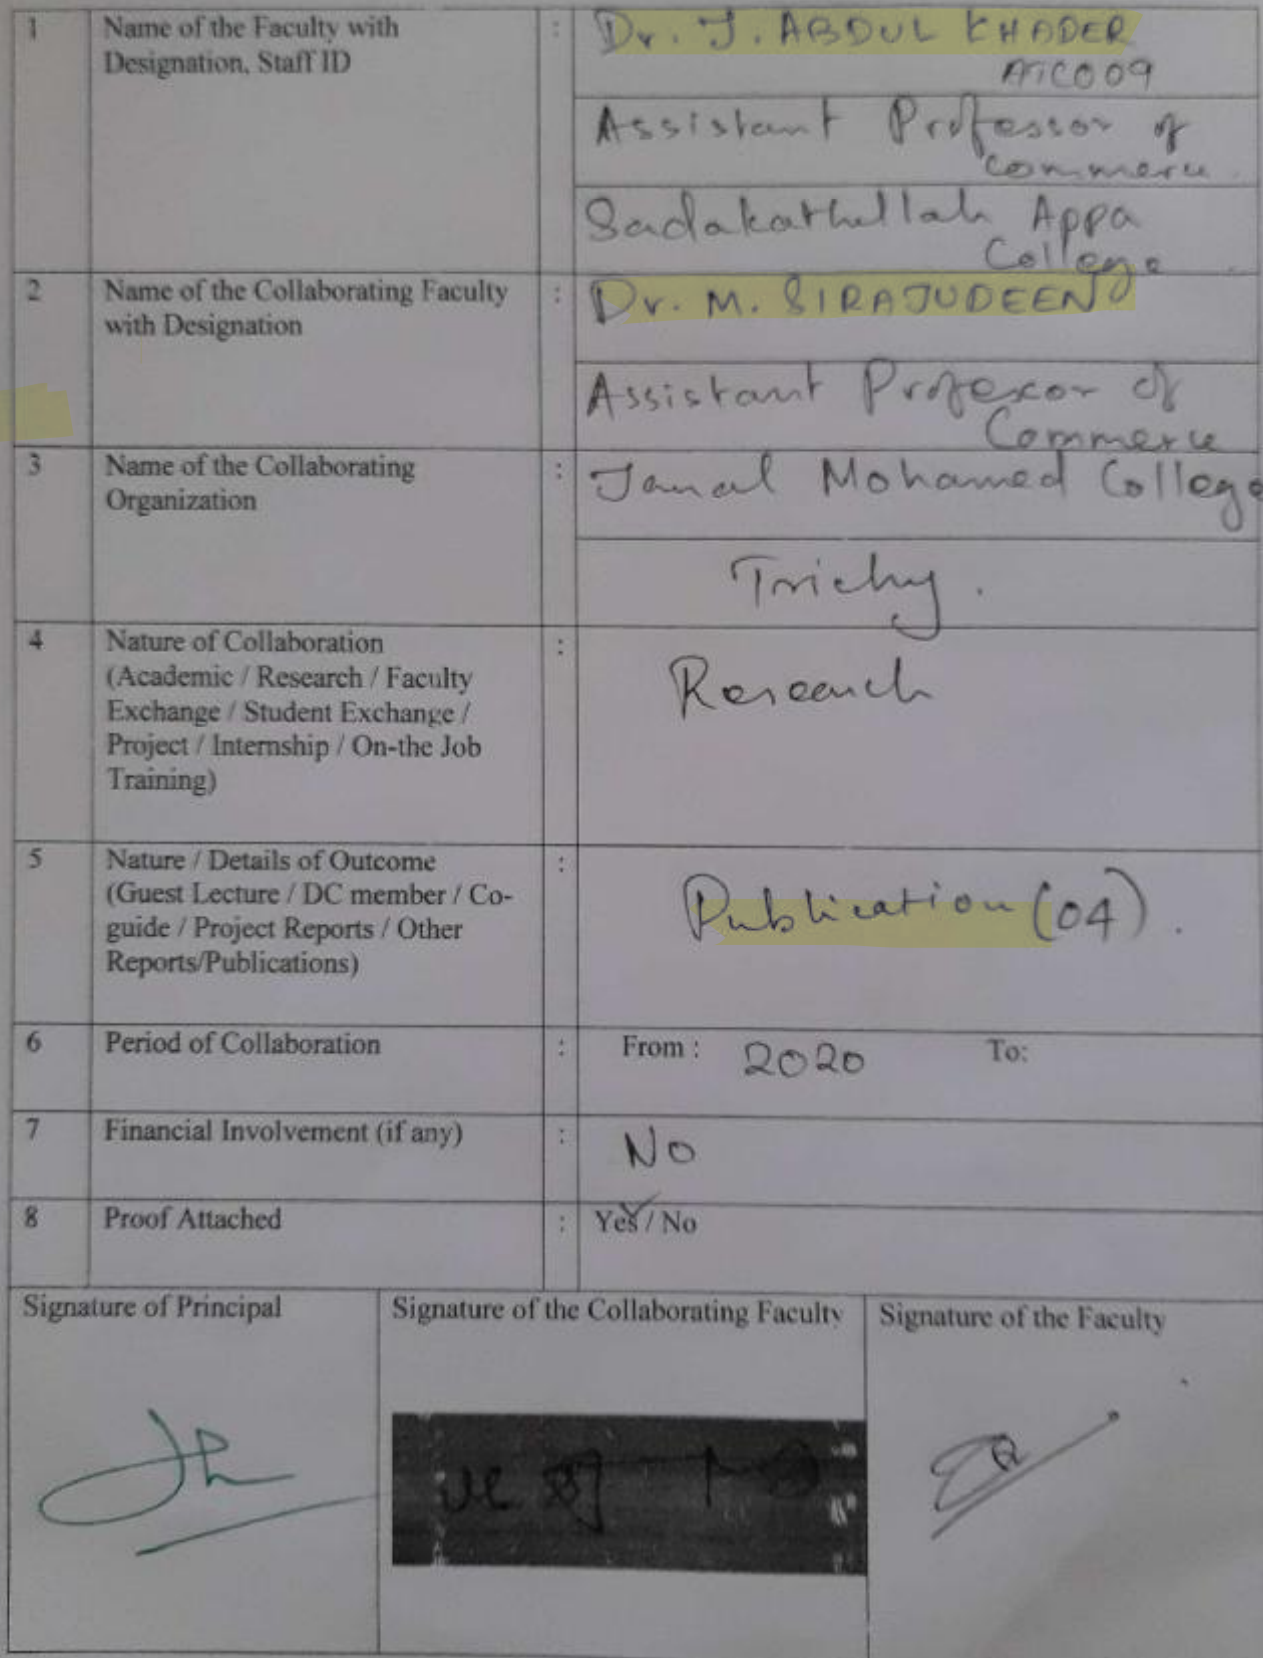 1 Name of the Faculty with : Dr. J. ABDUL KHADER
Designation, Staff ID AICO09
Assistant Professor of
Commerce
Sadakathullah Appa
College
2 Name of the Collaborating Faculty : Dr. M. SIRAJUDEEN
with Designation
Assistant Professor of
Commerce
3 Name of the Collaborating : Jamal Mohamed College
Organization
Trichy.
4 Nature of Collaboration :
(Academic / Research / Faculty Research
Exchange / Student Exchange /
Project / Internship / On-the Job
Training)
5 Nature / Details of Outcome :
(Guest Lecture / DC member / Co- Publication (04).
guide / Project Reports / Other
Reports/Publications)
6 Period of Collaboration : From : 2020 To:
7 Financial Involvement (if any) : No
8 Proof Attached : Yes / No
Signature of Principal Signature of the Collaborating Faculty Signature of the Faculty